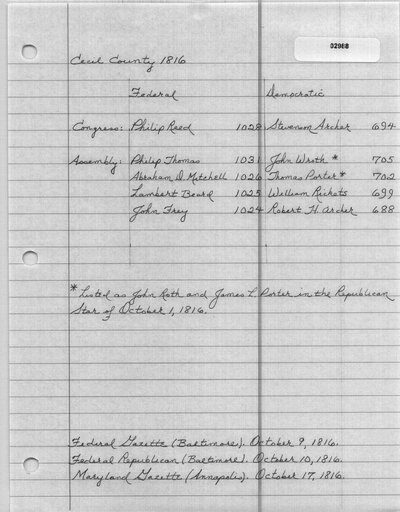 02988
Cecil County 1816
Federal Democratic
Congress: Philip Reed 1028 Stevenson Archer 694
Assembly: Philip Thomas 1031 John Wroth * 705
Abraham D. Mitchell 1026 Thomas Porter * 702
Lambert Beard 1025 William Rickets 699
John Frey 1024 Robert H. Archer 688
* Listed as John Roth and James L. Porter in the Republican
Star of October 1, 1816.
Federal Gazette (Baltimore). October 9, 1816.
Federal Republican (Baltimore). October 10, 1816.
Maryland Gazette (Annapolis). October 17, 1816.